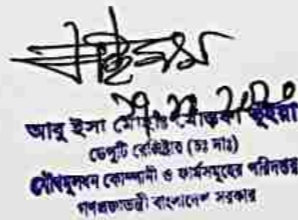 আবু ইসা মোহাঃ মোস্তফা ভূইয়া
ডেপুটি রেজিষ্ট্রার (চঃ দাঃ)
যৌথমূলধন কোম্পানী ও ফার্মসমূহের পরিদপ্তর
গণপ্রজাতন্ত্রী বাংলাদেশ সরকার